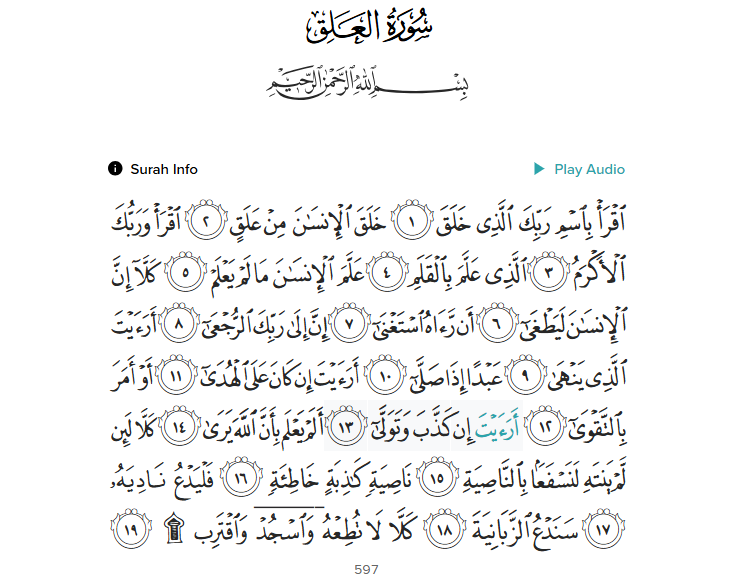 سُورَةُ العَلَقِ
بِسْمِ اللَّهِ الرَّحْمَٰنِ الرَّحِيمِ
Surah Info
Play Audio
ٱقۡرَأۡ بِٱسۡمِ رَبِّكَ ٱلَّذِى خَلَقَ ١ خَلَقَ ٱلۡإِنسَـٰنَ مِنۡ عَلَقٍ ٢ ٱقۡرَأۡ وَرَبُّكَ
ٱلۡأَكۡرَمُ ٣ ٱلَّذِى عَلَّمَ بِٱلۡقَلَمِ ٤ عَلَّمَ ٱلۡإِنسَـٰنَ مَا لَمۡ يَعۡلَمۡ ٥ كَلَّآ إِنَّ
ٱلۡإِنسَـٰنَ لَيَطۡغَىٰٓ ٦ أَن رَّءَاهُ ٱسۡتَغۡنَىٰٓ ٧ إِنَّ إِلَىٰ رَبِّكَ ٱلرُّجۡعَىٰٓ ٨ أَرَءَيۡتَ
ٱلَّذِى يَنۡهَىٰ ٩ عَبۡدًا إِذَا صَلَّىٰٓ ١٠ أَرَءَيۡتَ إِن كَانَ عَلَى ٱلۡهُدَىٰٓ ١١ أَوۡ أَمَرَ
بِٱلتَّقۡوَىٰٓ ١٢ أَرَءَيۡتَ إِن كَذَّبَ وَتَوَلَّىٰٓ ١٣ أَلَمۡ يَعۡلَم بِأَنَّ ٱللَّهَ يَرَىٰ ١٤ كَلَّا لَئِن
لَّمۡ يَنتَهِ لَنَسۡفَعَۢا بِٱلنَّاصِيَةِ ١٥ نَاصِيَةٍ كَـٰذِبَةٍ خَاطِئَةٍ ١٦ فَلۡيَدۡعُ نَادِيَهُۥ
١٧ سَنَدۡعُ ٱلزَّبَانِيَةَ ١٨ كَلَّا لَا تُطِعۡهُ وَٱسۡجُدۡ وَٱقۡتَرِب ۩ ١٩
597